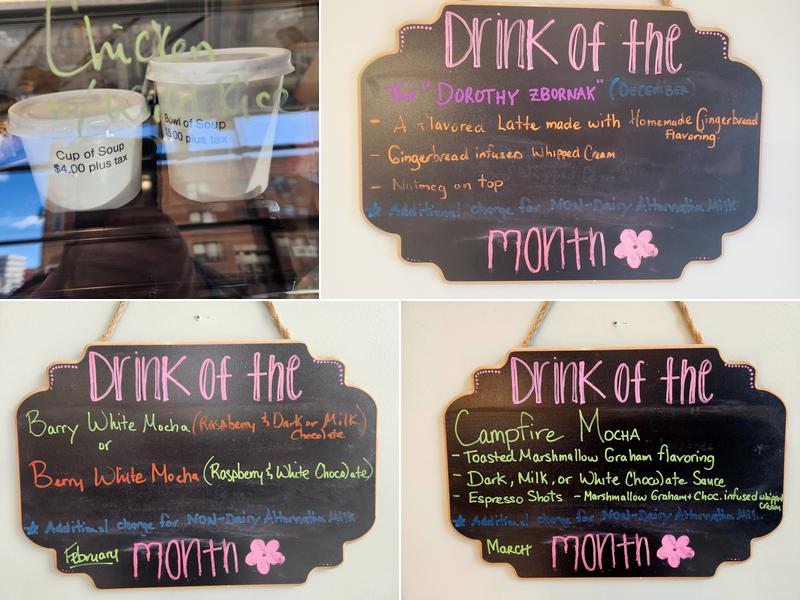 Chicken
w/ Wild Rice
Cup of Soup
$4.00 plus tax
Bowl of Soup
$5.00 plus tax
Drink of the
The "Dorothy Zbornak" (December)
- A flavored Latte made with Homemade Gingerbread
Flavoring.
- Gingerbread infused Whipped Cream
- Nutmeg on top
Additional charge for Non-Dairy Alternative Milk
month
Drink of the
Barry White Mocha (Raspberry & Dark or Milk
Chocolate
or
Berry White Mocha (Raspberry & White Chocolate)
Additional charge for Non-Dairy Alternative Milk
February month
Drink of the
Campfire Mocha
- Toasted Marshmallow Graham flavoring
- Dark, Milk, or White Chocolate Sauce
- Espresso Shots - Marshmallow Graham + Choc. infused whipped
cream
Additional charge for Non-Dairy Alternative Milk
March month